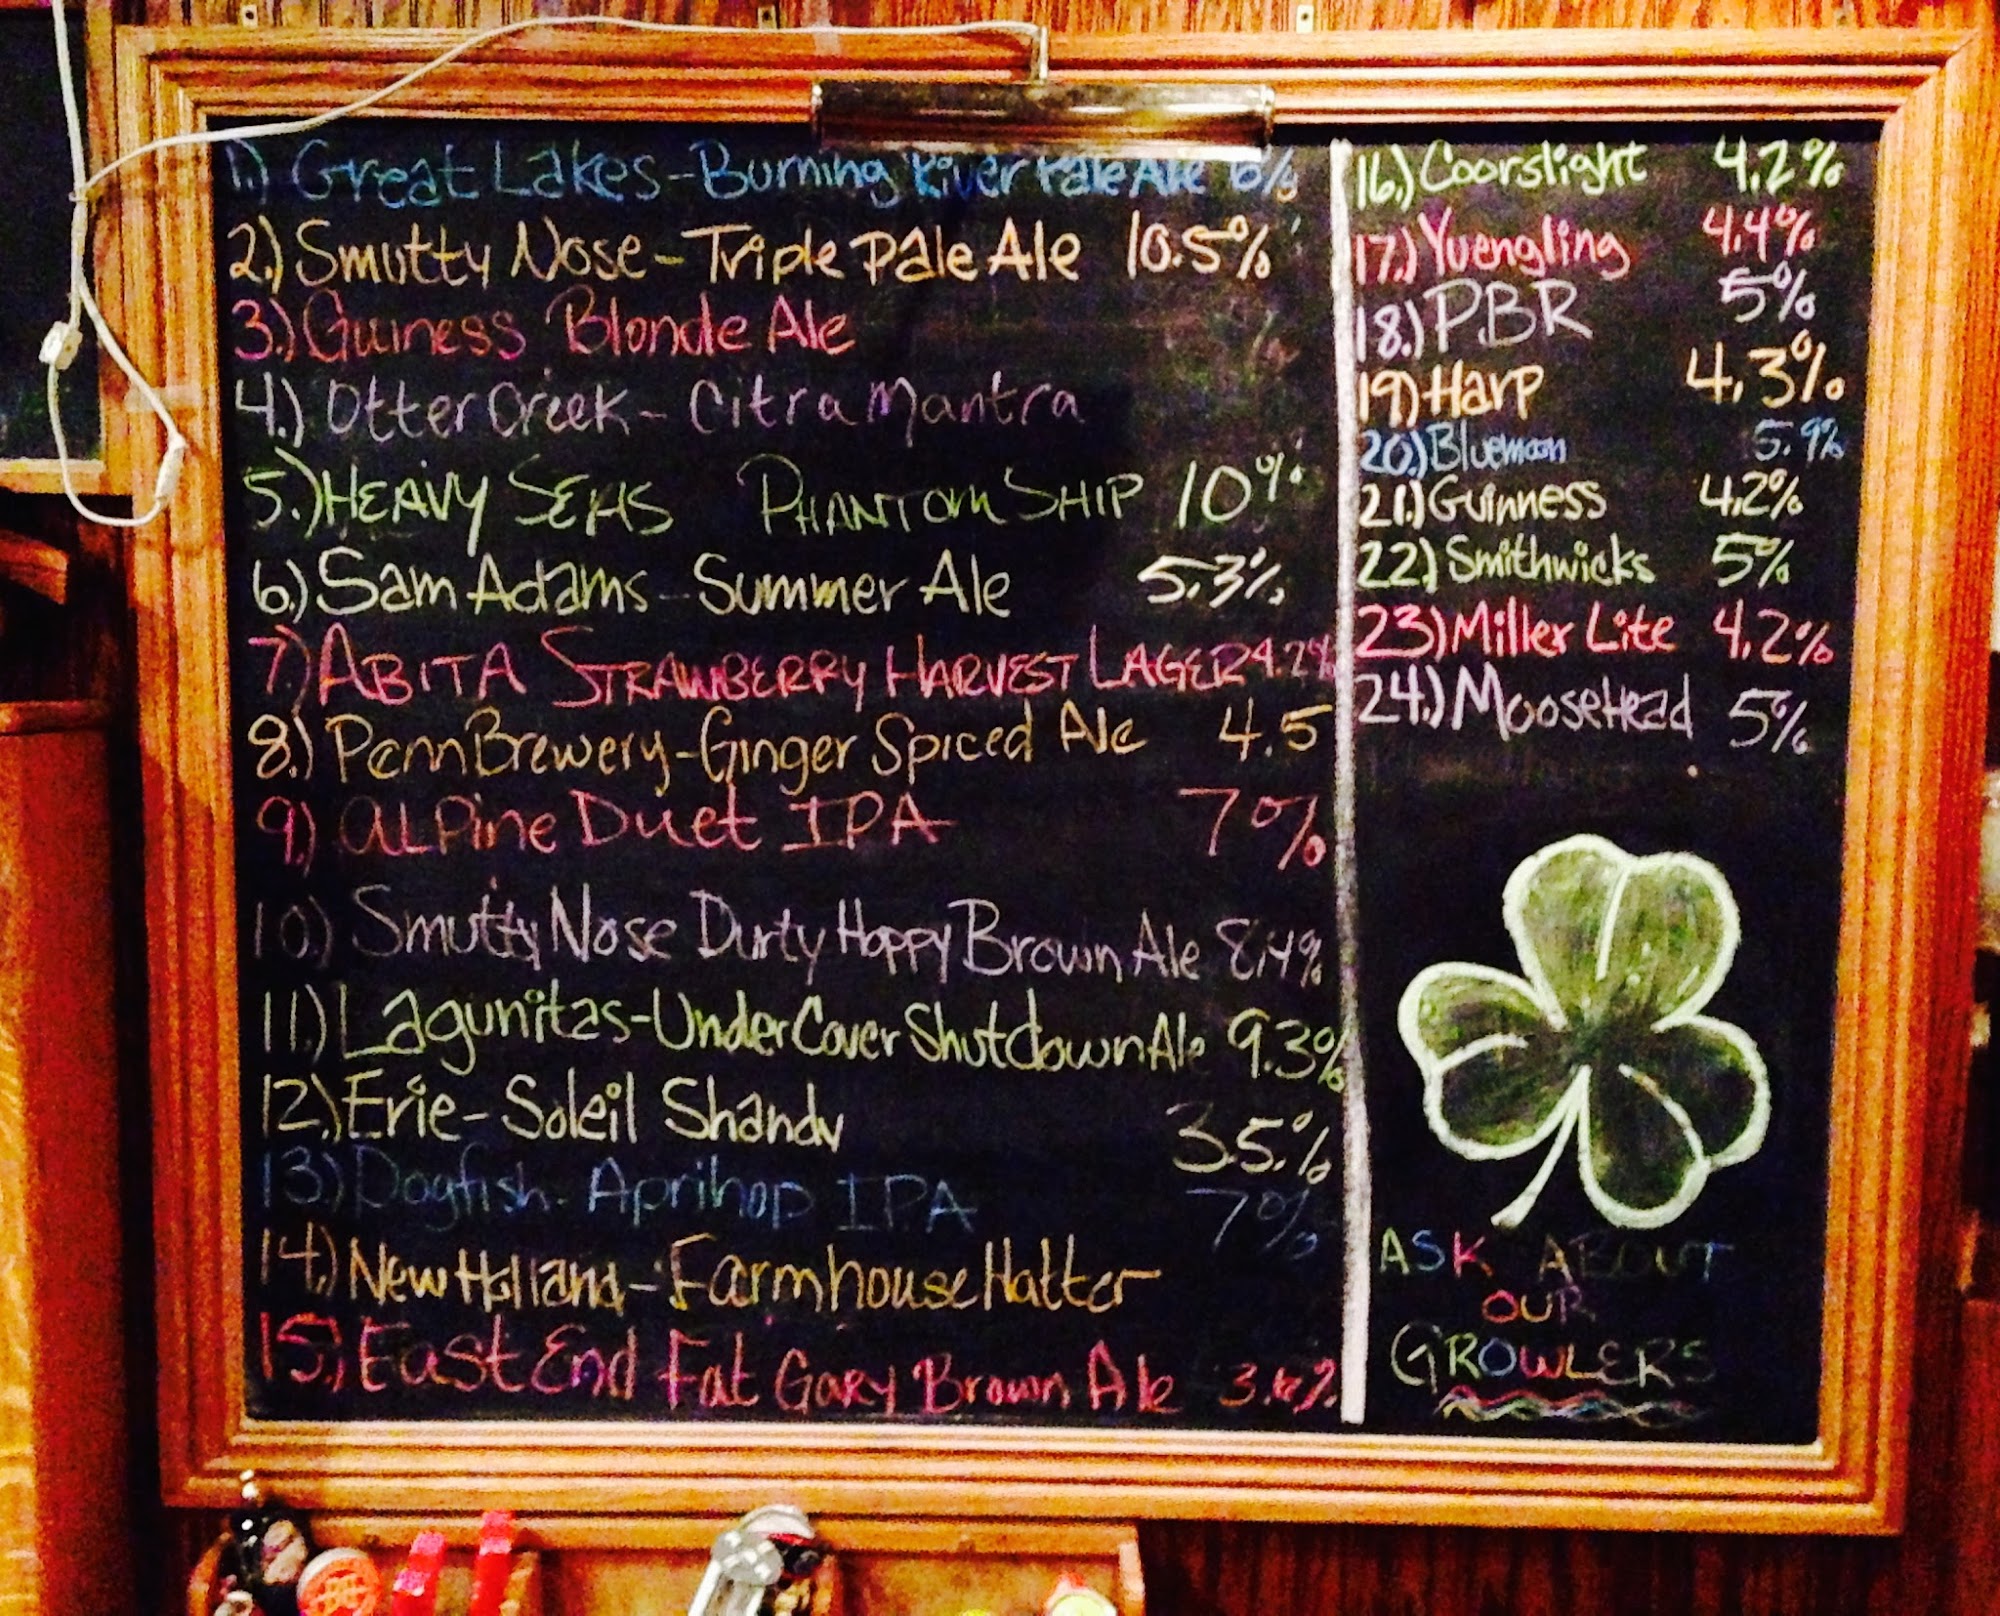 1.) Great Lakes - Burning River Pale Ale 6%
2.) Smutty Nose - Triple Pale Ale 10.5%
3.) Guiness Blonde Ale
4.) Otter Creek - Citra Mantra
5.) HEAVY SEAS PHANTOM SHIP 10%
6.) Sam Adams - Summer Ale 5.3%
7.) ABITA STRAWBERRY HARVEST LAGER 4.2%
8.) Penn Brewery - Ginger Spiced Ale 4.5
9.) ALPine Duet IPA 7%
10.) Smutty Nose Durty Hoppy Brown Ale 8.4%
11.) Lagunitas - UnderCover Shutdown Ale 9.3%
12.) Erie - Soleil Shandy 3.5%
13.) Dogfish - Aprihop IPA 7%
14.) New Holland - Farmhouse Hatter
15.) East End Fat Gary Brown Ale
16.) Coorslight 4.2%
17.) Yuengling 4.4%
18.) PBR 5%
19.) Harp 4.3%
20.) Bluemoon 5.9%
21.) Guinness 4.2%
22.) Smithwicks 5%
23.) Miller Lite 4.2%
24.) MooseHead 5%
ASK ABOUT
OUR
GROWLERS